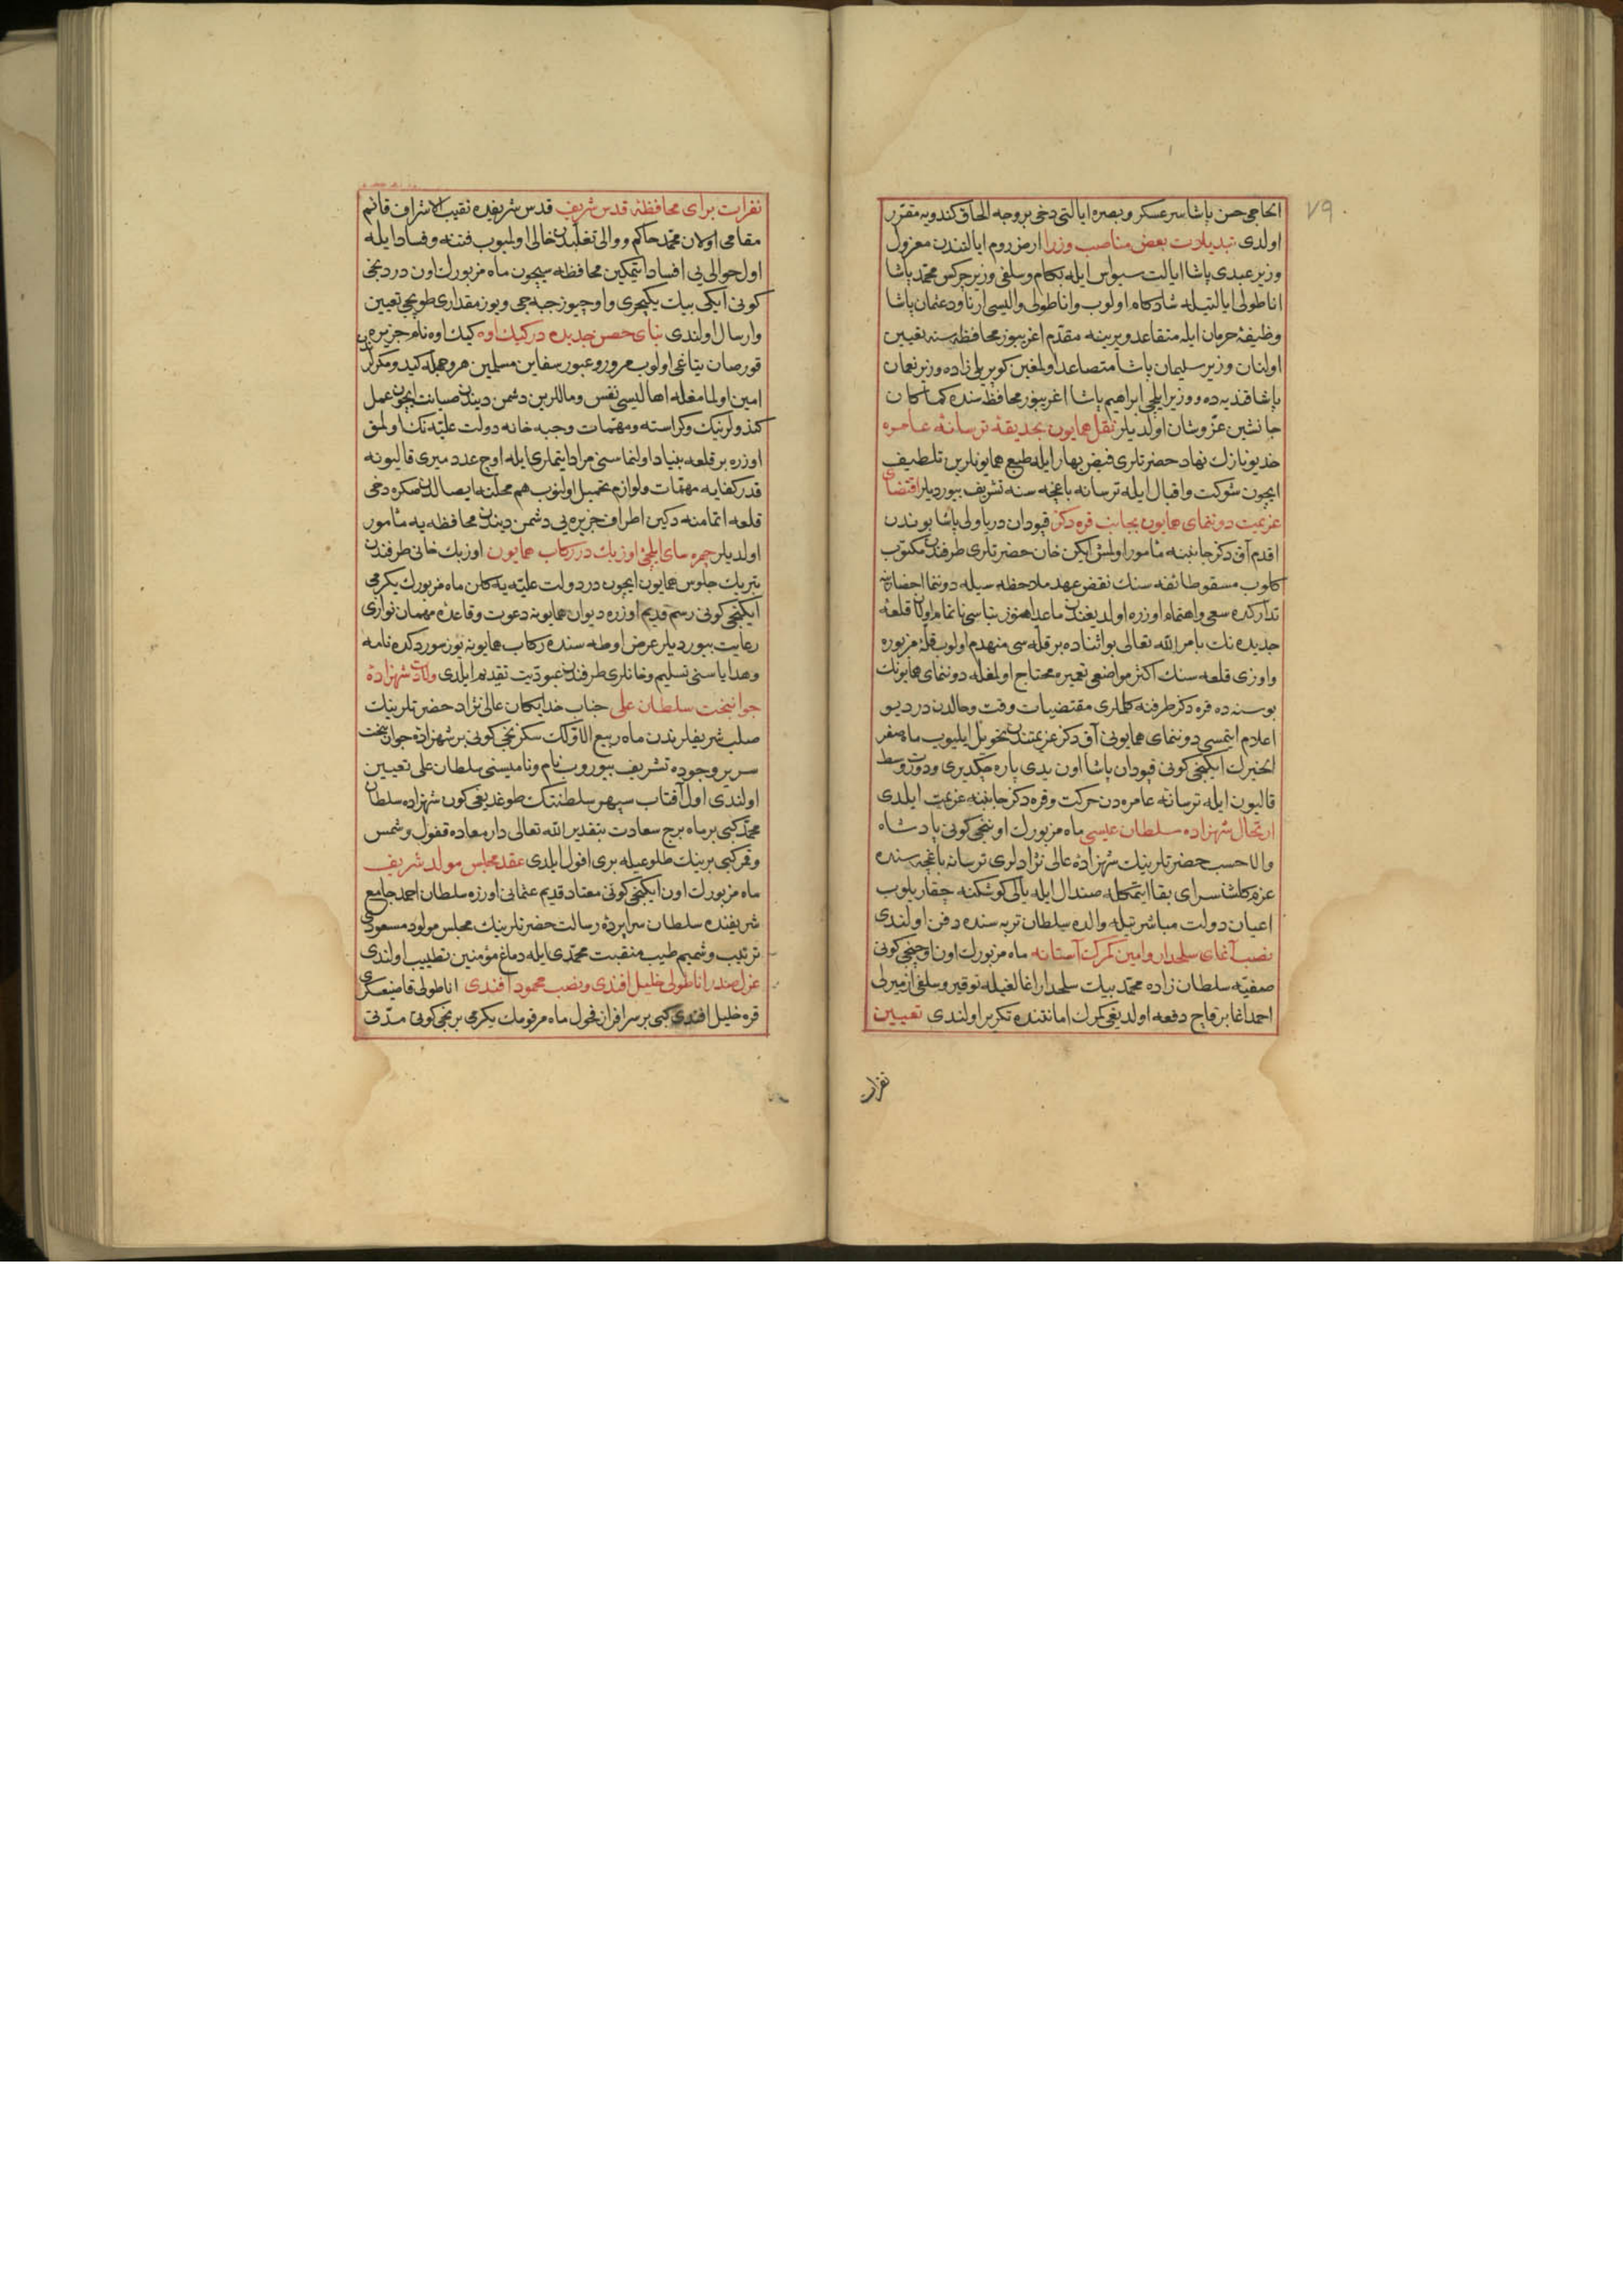 ٧٩
الحاجی حسن پاشا سر عسكر و بصره ایالتی دخی بر وجه الحاق كندویه مقرر
اولدی تبدیلات بعض مناصب وزرا ارض روم ایالتندن معزول
وزیر عبدی پاشا ایالت سیواس ایله بكام و سلفی وزیر چركس محمد پاشا
اناطولی ایالتیله شادكام اولوب و اناطولی والیسی ارناود عثمان پاشا
وظیفهٔ حرمان ایله متقاعد و یرینه مقدم اغریبوز محافظه سنه تعیین
اولنان وزیر سلیمان پاشا متصاعد اولمغین كوپریلی زاده وزیر نعمان
پاشا قندیه ده و وزیر ایلچی ابراهیم پاشا اغریبوز محافظه سنده كما كان
جانشین عز و شان اولدیلر نقل همایون بحدیقهٔ ترسانهٔ عامره
خدیو نازك نهاد حضرتلری فیض بهار ایله طبع همایونلرین تلطیف
ایچون شوكت و اقبال ایله ترسانه باغچه سنه تشریف بیوردیلر اقتضای
عزیمت دوننمای همایون بجانب قره دكز قپودان دریا ولی پاشا بوندن
اقدم آق دكز جانبنه مأمور اولمش ایكن خان حضرتلری طرفندن مكتوب
كلوب مسقو طائفه سنك نقض عهد ملاحظه سیله دوننما احضارینه
تداركده سعی و اهتمام اوزره اولدیغندن ماعدا هنوز بناسی ناتمام اولان قلعهٔ
جدیده نك بامر الله تعالی بو اثناده بر قله سی منهدم اولوب قلهٔ مزبوره
و اوزی قلعه سنك اكثر مواضعی تعمیره محتاج اولمغله دوننمای همایونك
بو سنه ده قره دكز طرفنه كلملری مقتضیات وقت و حالدن در دیو
اعلام ایتمسی دوننمای همایونی آق دكز عزیمتندن تحویل ایلیوب ماه صفر
الخیرك ایكنجی كونی قپودان پاشا اون یدی پاره چكدیری و دورت وسط
قالیون ایله ترسانهٔ عامره دن حركت و قره دكز جانبنه عزیمت ایلدی
ارتحال شهزاده سلطان عیسی ماه مزبورك اوننجی كونی پادشاه
والا حسب حضرتلرینك شهزادهٔ عالی نژادلری ترسانه باغچه سنده
عزم كلشنسرای بقا ایتمكله صندال ایله یالی كوشكنه چقاریلوب
اعیان دولت مباشرتیله والده سلطان تربه سنده دفن اولندی
نصب آغای سلحدار و امین كمرك آستانه ماه مزبورك اون اوچنجی كونی
صفیه سلطان زاده محمد بیك سلحدار اغالغیله توقیر و سلفی ازمیرلی
احمد اغا بر قاچ دفعه اولدیغی كمرك امانتنده تكریر اولندی تعیین
نفرات
نفرات برای محافظهٔ قدس شریف قدس شریفده نقیب الاشراف قائم
مقامی اولان محمد حاكم و والی تغلبدن خالی اولمیوب فتنه و فساد ایله
اول حوالی یی افساد ایتمكین محافظه سیچون ماه مزبورك اون دردنجی
كونی ایكی بیك یكیچری و اوچیوز جبه جی و یوز مقداری طوپجی تعیین
و ارسال اولندی بنای حصن جدیده در كیك اوه كیك اوه نام جزیره
قورصان یتاغی اولوب مرور و عبور سفاین مسلمین هر وجهله كید و مكرلرندن
امین اولمامغله اهالیسی نفس و ماللرین دشمن دیندن صیانت ایچون عمل
كندولرینك و كراسته و مهمات و جبه خانه دولت علیه نك اولمق
اوزره بر قلعه بنیاد اولنماسنی مراد ایتملری ایله اوچ عدد میری قالیونه
قدر كفایه مهمات و لوازم تحمیل اولنوب هم محلنه ایصالدن صكره دخی
قلعه اتمامنه دكین اطراف جزیره یی دشمن دیندن محافظه یه مأمور
اولدیلر چهره سای ایلچی اوزبك در ركاب همایون اوزبك خانی طرفندن
تبریك جلوس همایون ایچون در دولت علیه یه كلن ماه مزبورك یكرمی
ایكنجی كونی رسم قدیم اوزره دیوان همایونه دعوت و قاعدهٔ مهمان نوازی
رعایت بیوردیلر عرض اوطه سنده ركاب همایونه یوز سوردكده نامه
و هدایاسنی تسلیم و خانلری طرفندن عبودیت تقدیم ایلدی ولادت شهزادهٔ
جوانبخت سلطان علی جناب خدایكان عالی نژاد حضرتلرینك
صلب شریفلرندن ماه ربیع الاولك سكزنجی كونی بر شهزادهٔ جوان بخت
سریر وجوده تشریف بیوروب نام و نامیسنی سلطان علی تعیین
اولندی اول آفتاب سپهر سلطنتك طوغدیغی كون شهزاده سلطان
محمد كبی بر ماه برج سعادت بتقدیر الله تعالی دار معاده قفول و شمس
و قمر كبی برینك طلوعیله بری افول ایلدی عقد مجلس مولد شریف
ماه مزبورك اون ایكنجی كونی معتاد قدیم عثمانی اوزره سلطان احمد جامع
شریفنده سلطان سراپردهٔ رسالت حضرتلرینك مجلس مولود مسعودی
ترتیب و شمیم طیب منقبت محمدی ایله دماغ مؤمنین تطییب اولندی
عزل صدر اناطولی خلیل افندی و نصب محمود افندی اناطولی قاضیعسكری
قره خلیل افندی كبی بر سرافراز فحول ماه مرقومك یكرمی برنجی كونی مدتی